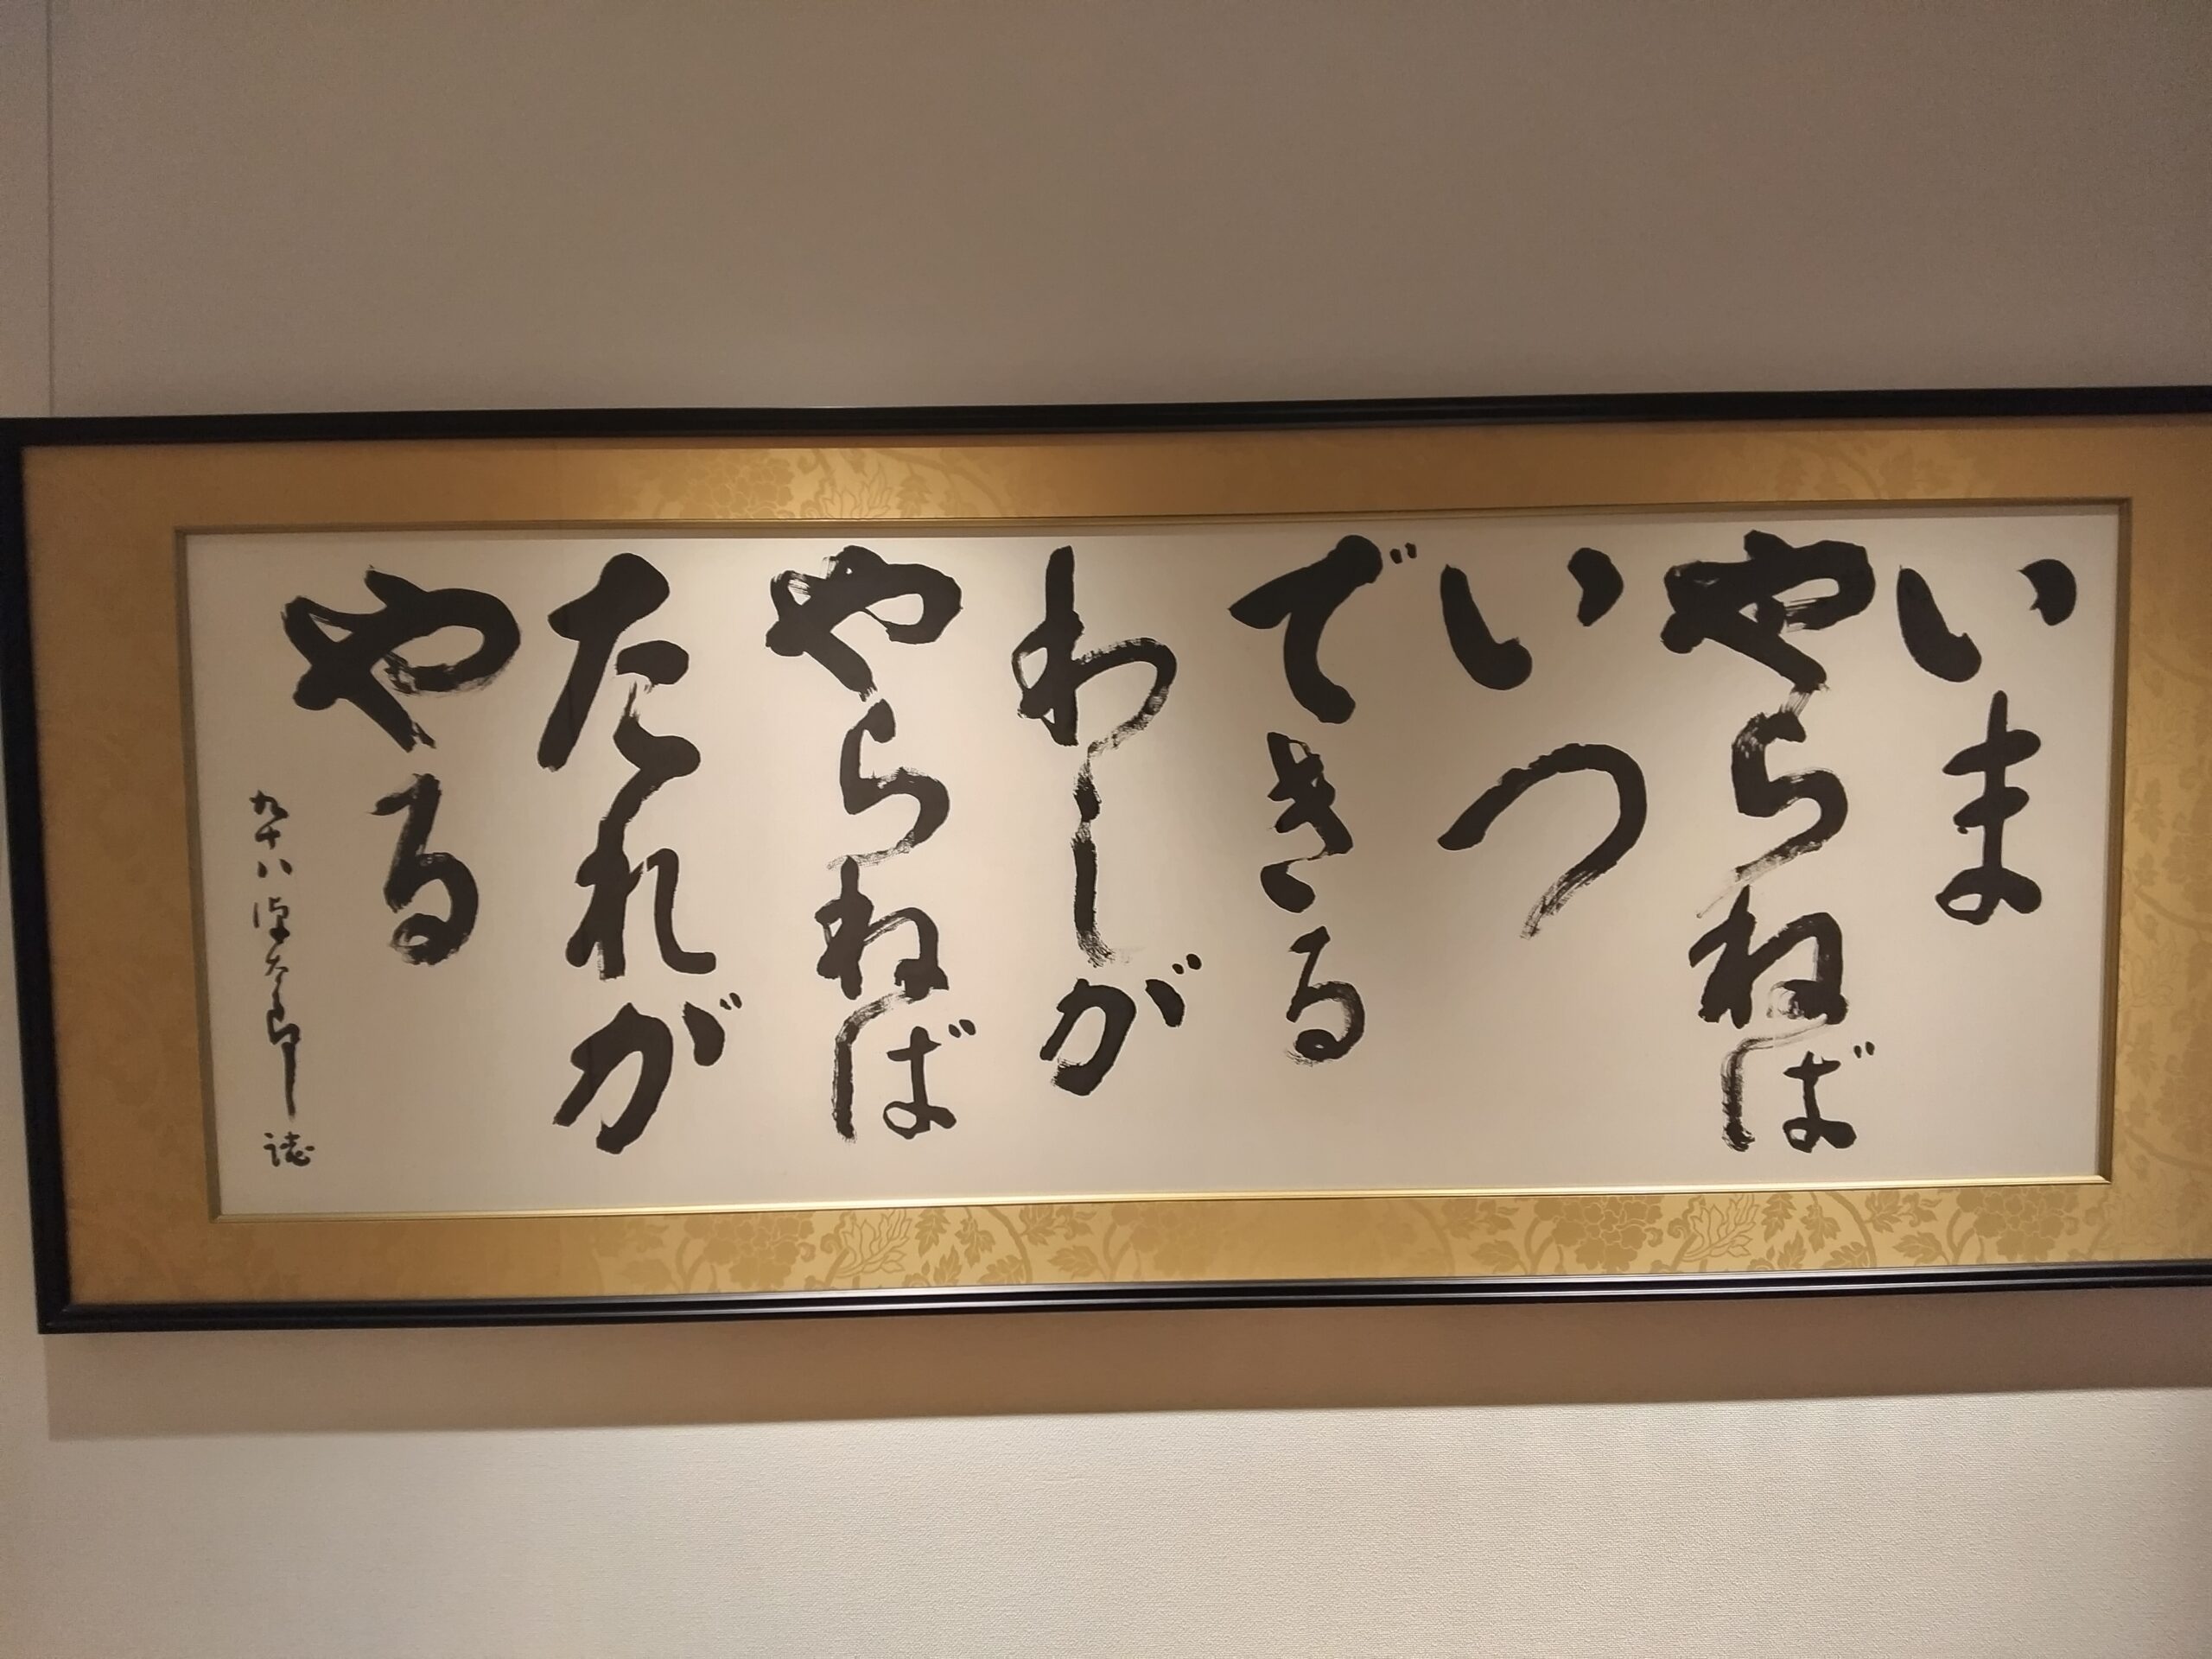 いま
やらねば
いつ
できる
わしが
やらねば
たれが
やる
九十八 倬太郎 誌